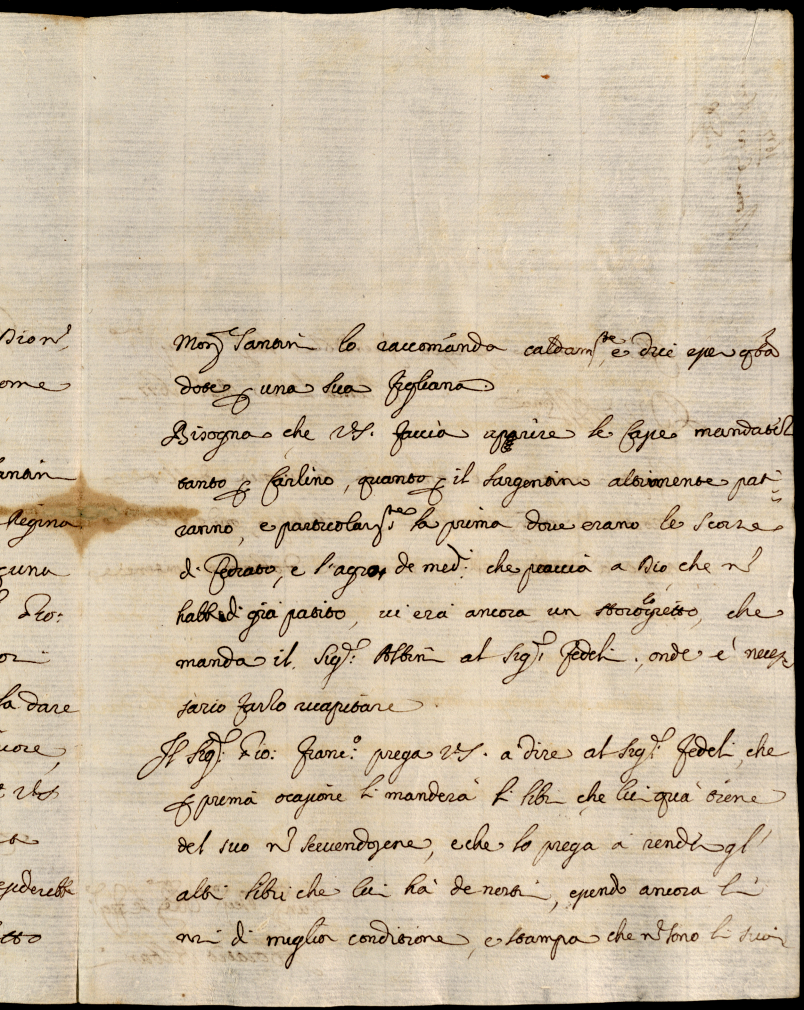 Dion.^i
ome
antin
Regina
cuna
Gio:
ori
la dare
uore,
VS
Mon.^r Santin lo raccomanda caldam.^te, e dice esser q.^ta
dote p una sua Figliana.
Bisogna che VS. faccia aprire le Casse mandateli
tanto p Carlino, quanto p il Sargentin altrimente pati=
ranno, e particolarm.^te la prima dove erano le Scorze
di Cedrato, e l'agro de med.^i che piaccia a Dio, che n.
habb. di già patito, vi era ancora un horologietto, che
manda il Sig.^r Albini al Sig.^r Fedeli, onde è neces
sario farlo ricapitare
Il Sig.^r Gio: Franc.^o prega VS. a dire al Sig.^r Fedeli, che
p prima ocasione li manderà li libri che lui quà tiene
del suo n. servendosene, e che lo prega a renderli gl'
altri libri che lui hà de nostri, essendo ancora li
nri di miglior conditione, e stampa che n. sono li suoi